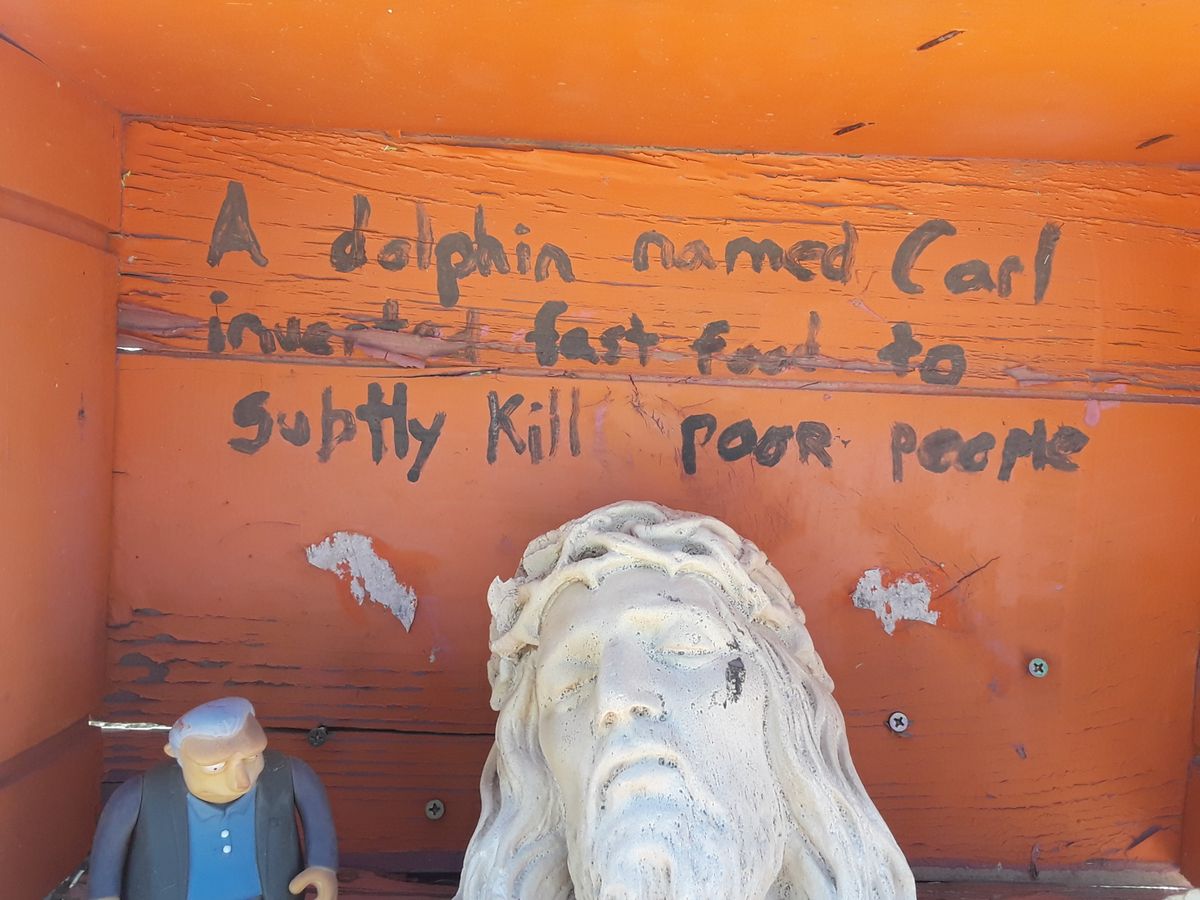 A dolphin named Carl
invented fast food to
Subtly Kill poor people